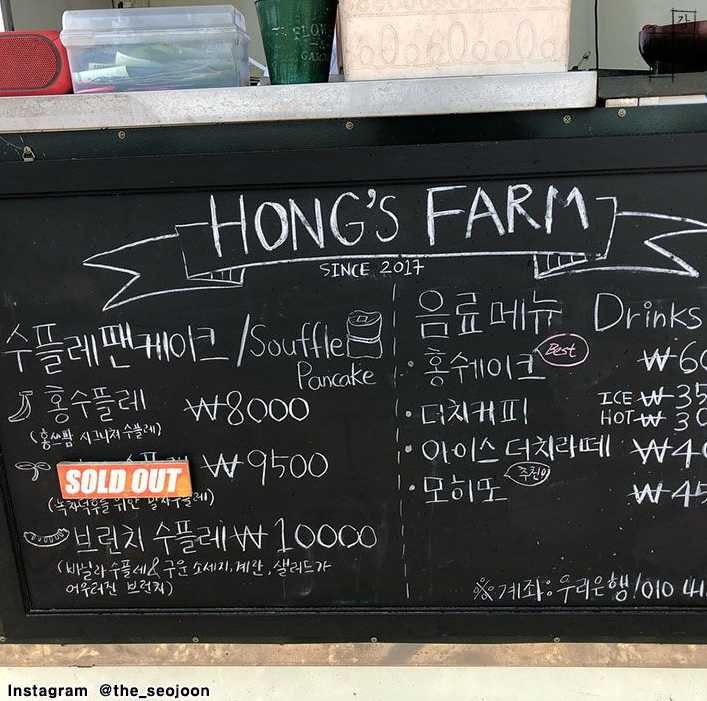 FLOW
GA
강
HONG'S FARM
SINCE 2017
수플레팬케이크/Souffle
Pancake
홍수플레 ₩8000
(홍스팜 시그니처 수플레)
SOLD OUT ₩9500
수플레)
브런치 수플레 ₩10000
(바닐라수플레& 구운 소세지, 계란, 샐러드가
어우러진 브런치)
음료메뉴 Drinks
· 홍쉐이크 Best ₩60
· 더치커피 ICE ₩35
HOT ₩30
· 아이스더치라떼 ₩40
· 모히또 추천 ₩45
※계좌:우리은행/010 41
Instagram @the_seojoon